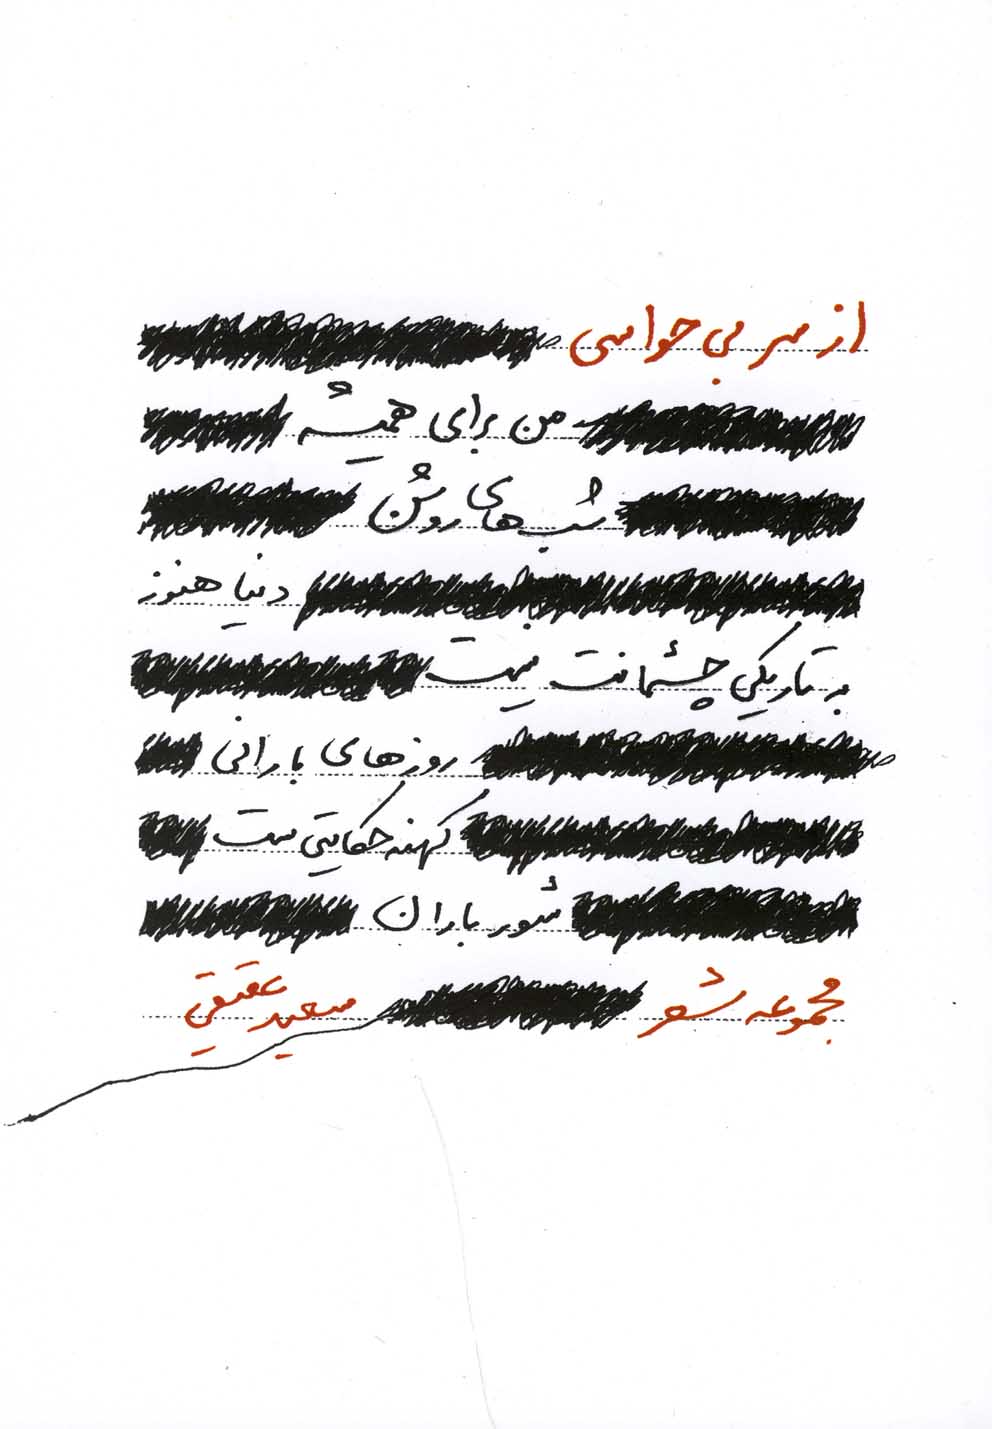 از سر بی حواسی
من برای همیشه
شب‌های روشن
دنیا هنوز
به تاریکیِ چشمانت نیست
روزهای بارانی
کهنه حکایتی ست
شور باران
مجموعه شعر سعید عقیقی